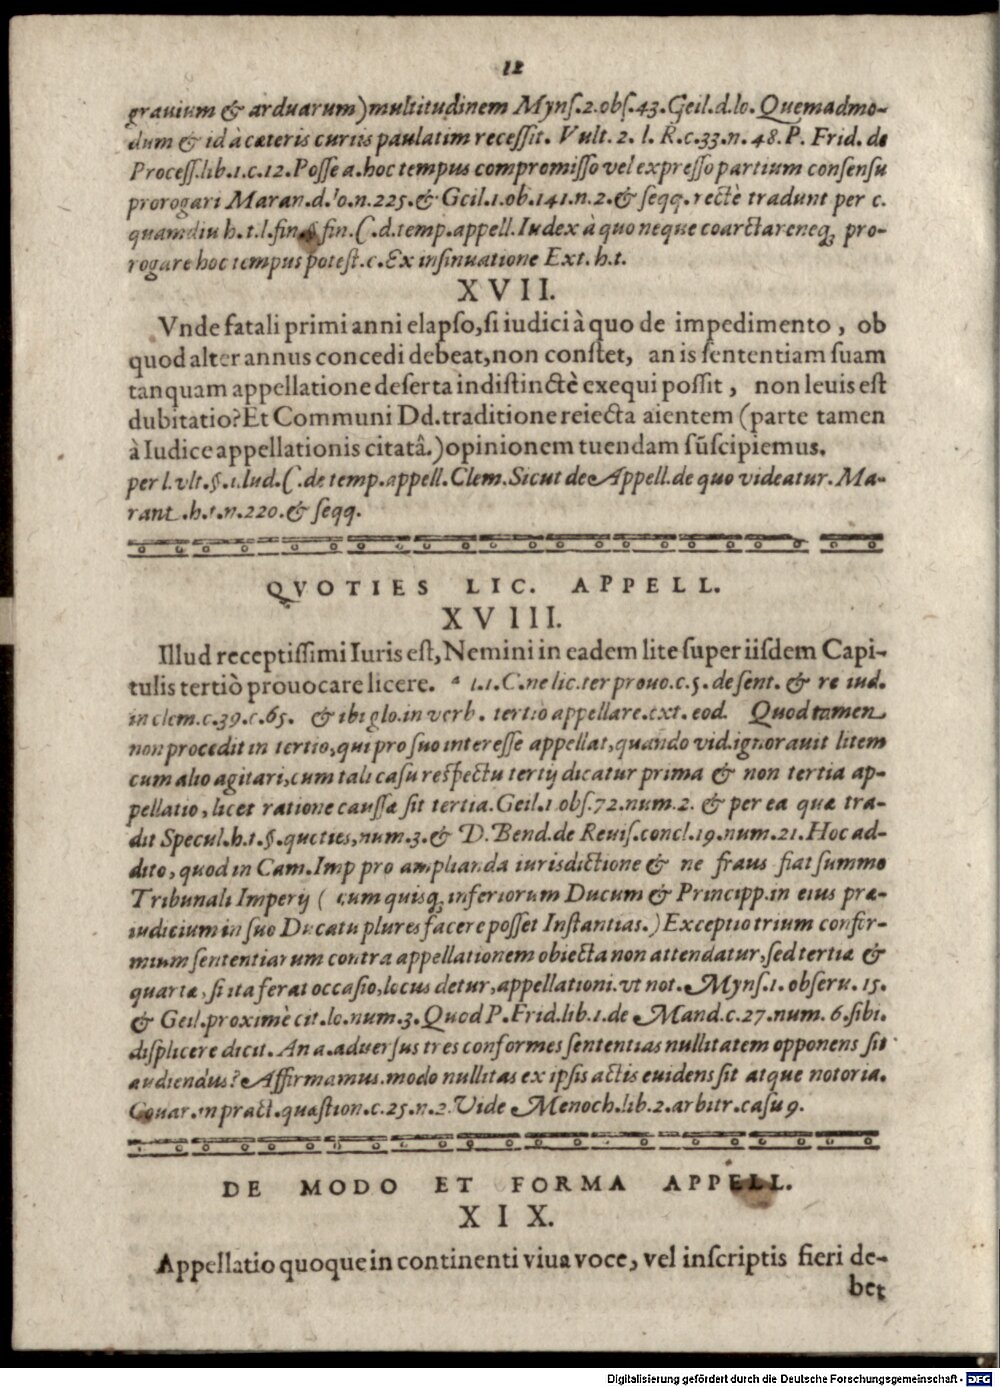 12
grauium & arduarum) multitudinem Mynſ.2.obſ.43.Geil.d.lo. Quemadmo-
dum & id à cæteris curiis paulatim receſſit. Vult. 2. l. R.c.33.n. 48.P. Frid. de
Proceſſ.lib.1.c.12.Poſſe a.hoc tempus compromiſſo vel expreſſo partium conſenſu
prorogari Maran.d.lo.n.225.& Geil.1.ob.141.n.2.& ſeqq.rectè tradunt per c.
quamdiu h.t.l.fin.§ fin.C.d.temp.appell.Iudex à quo neque coarctare neq; pro-
rogare hoc tempus poteſt.c.Ex inſinuatione Ext.h.t.
XVII.
Vnde fatali primi anni elapſo,ſi iudici à quo de impedimento , ob
quod alter annus concedi debeat,non conſtet, an is ſententiam ſuam
tanquam appellatione deſerta indiſtinctè exequi poſſit , non leuis eſt
dubitatio?Et Communi Dd.traditione reiecta aientem (parte tamen
à Iudice appellationis citatâ.)opinionem tuendam ſuſcipiemus.
per l.vlt.§.1.lud.C.de temp.appell.Clem.Sicut de Appell.de quo videatur.Ma-
rant.h.t.n.220.& ſeqq.
QVOTIES LIC. APPELL.
XVIII.
Illud receptiſſimi Iuris eſt,Nemini in eadem lite ſuper iiſdem Capi-
tulis tertiò prouocare licere. ᵃ l.1.C.ne lic.ter prouo.c.5.de ſent. & re iud.
in clem.c.39.c.65. & ibi glo.in verb. tertio appellare.ext. eod. Quod tamen
non procedit in tertio,qui pro ſuo intereſſe appellat,quando vid.ignorauit litem
cum alio agitari,cum tali caſu reſpectu tertij dicatur prima & non tertia ap-
pellatio, licet ratione cauſſæ ſit tertia.Geil.1 obſ.72.num.2. & per ea quæ tra-
dit Specul.h.t.§.quoties,num.3.& D.Bend.de Reuiſ.concl.19.num.21.Hoc ad-
dito, quod in Cam.Imp pro amplianda iurisdictione & ne fraus fiat ſummo
Tribunali Imperij ( cum quisq; inferiorum Ducum & Principp.in eius præ-
iudicium in ſuo Ducatu plures facere poſſet Inſtantias.) Exceptio trium confor-
mium ſententiarum contra appellationem obiecta non attendatur,ſed tertiæ &
quartæ, ſi ita ferat occaſio,locus detur,appellationi.vt not. Mynſ.1. obſeru. 15.
& Geil.proximè cit.lo.num.3.Quod P.Frid.lib.1.de Mand.c.27.num. 6.ſibi.
diſplicere dicit. An a.aduerſus tres conformes ſententias nullitatem opponens ſit
audiendus? Affirmamus.modo nullitas ex ipſis actis euidens ſit atque notoria.
Couar.in pract.quæſtion.c.25.n.2.Vide Menoch.lib.2.arbitr.caſu 9.
DE MODO ET FORMA APPELL.
XIX.
Appellatio quoque in continenti viua voce, vel inſcriptis fieri de-
bet
Digitalisierung gefördert durch die Deutsche Forschungsgemeinschaft - DFG